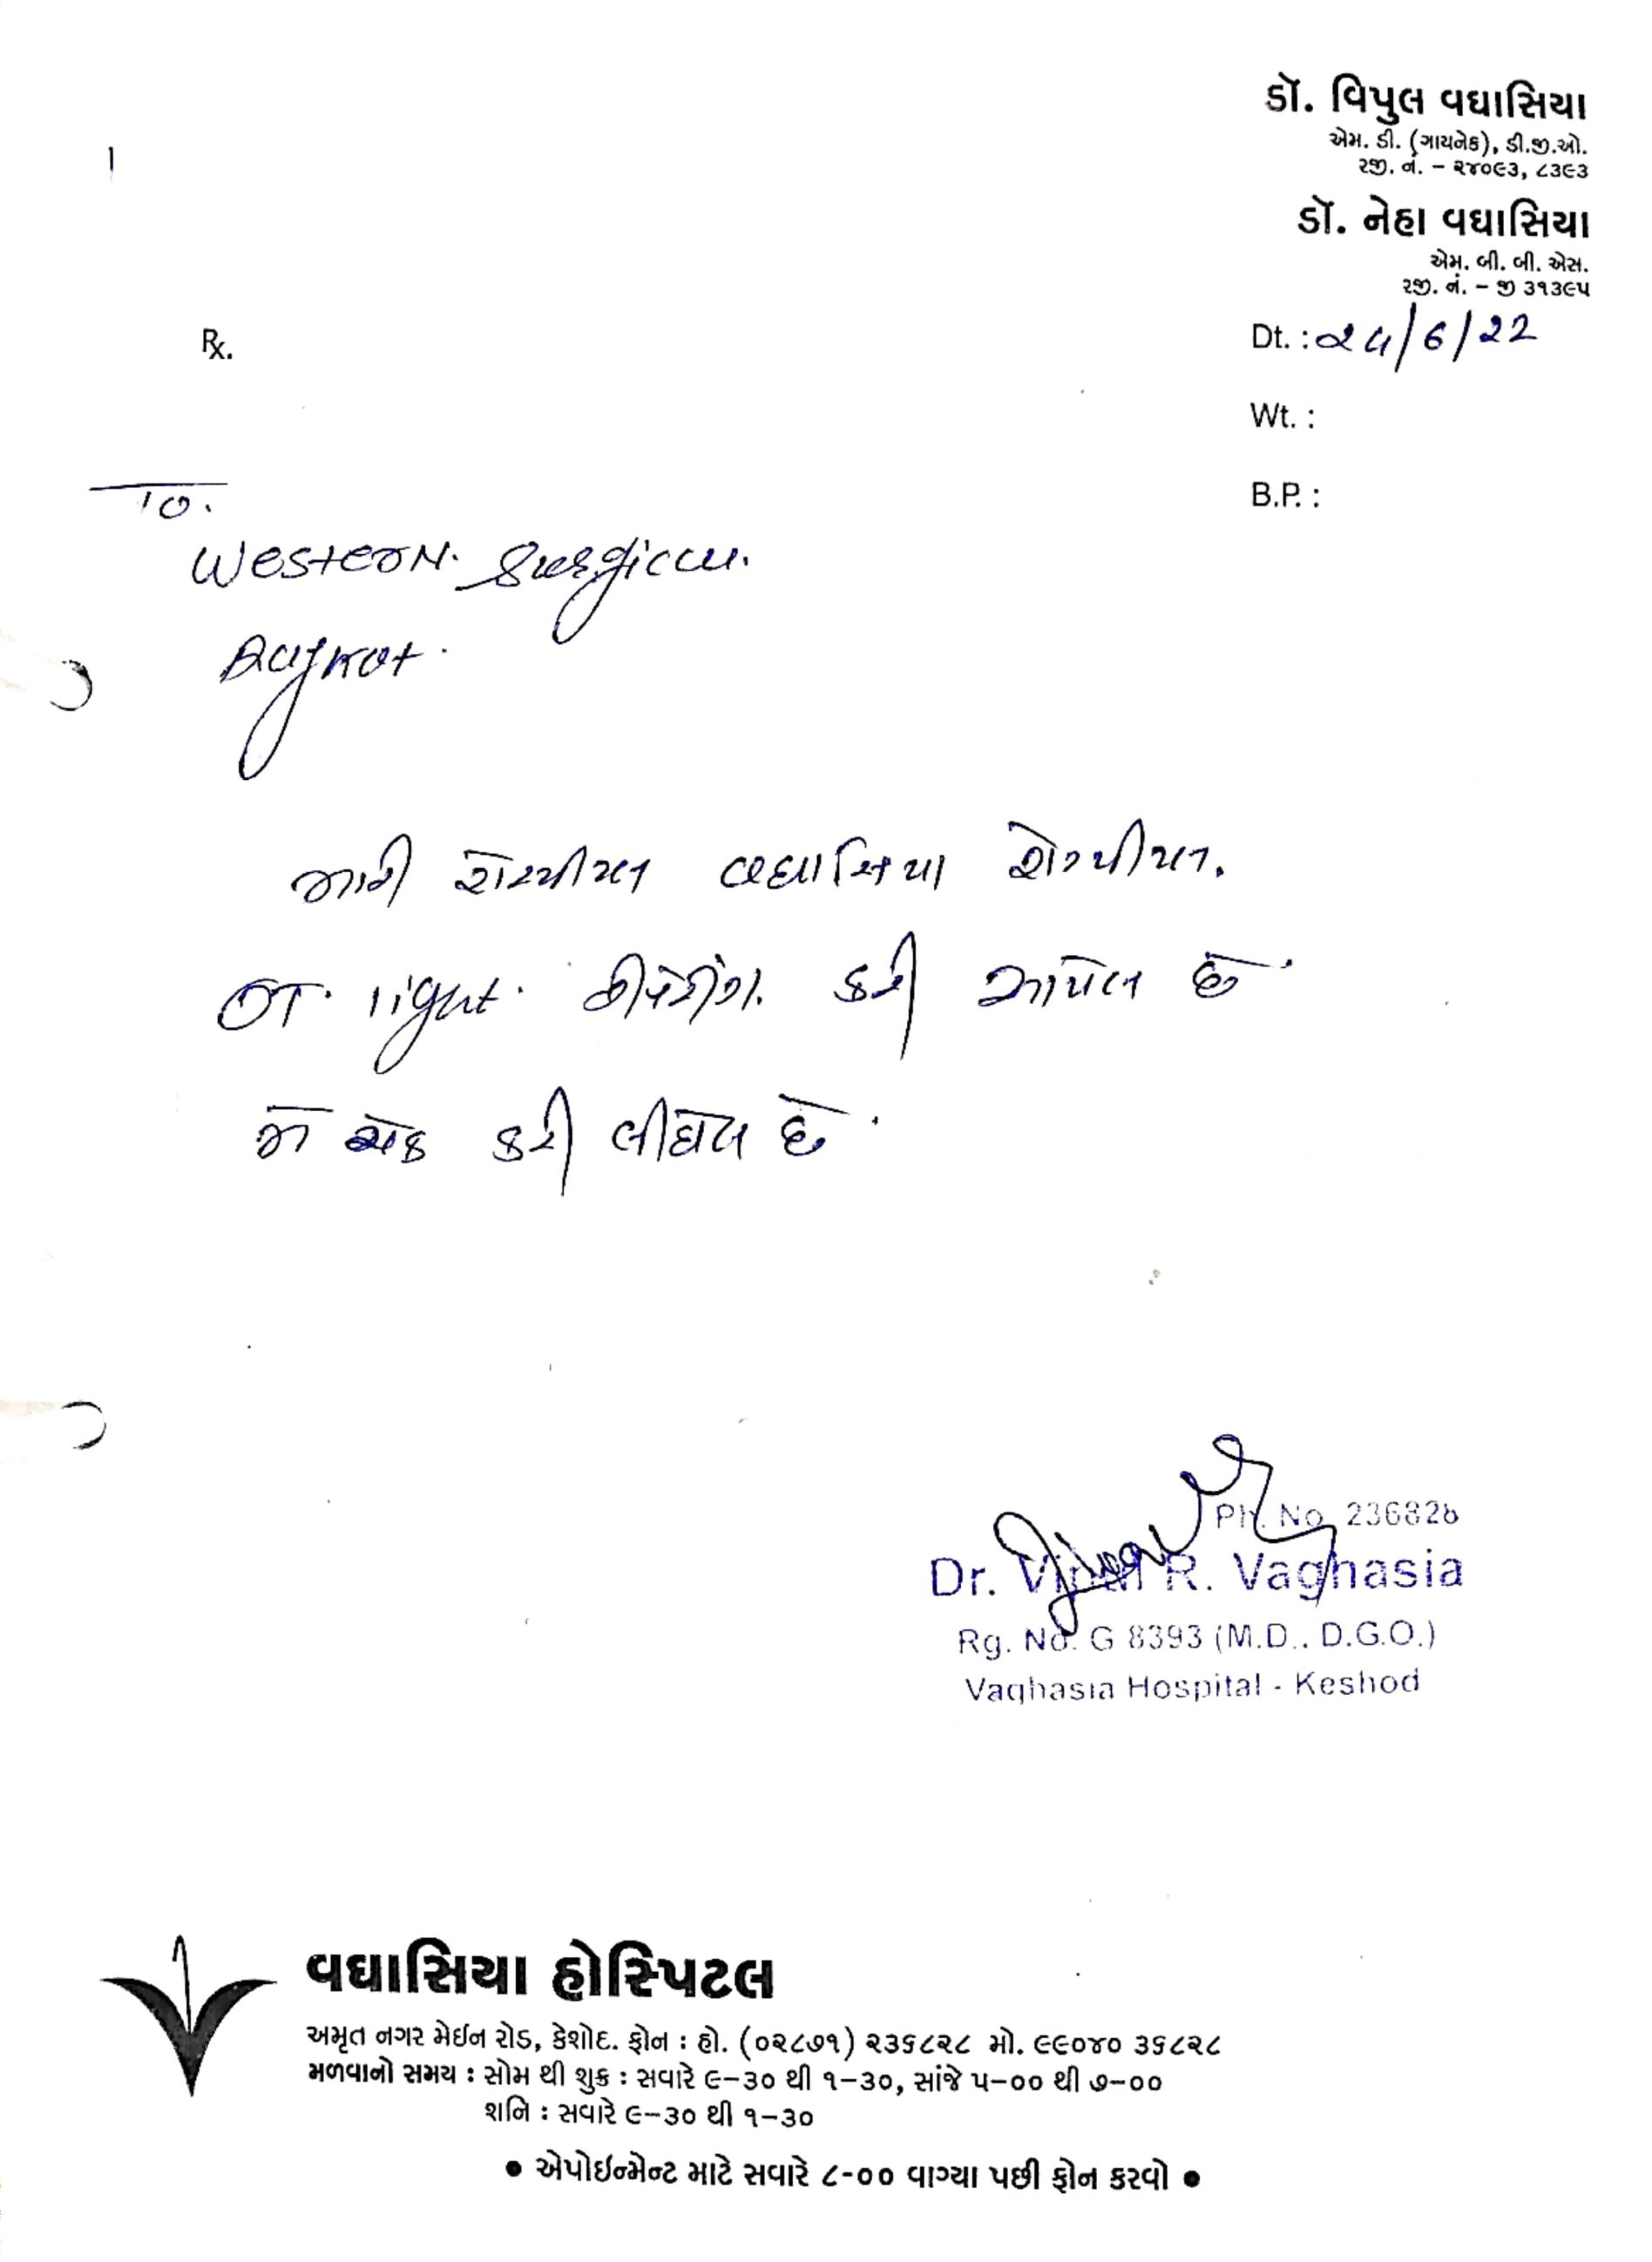 ડૉ. વિપુલ વઘાસિયા
એમ. ડી. (ગાયનેક), ડી.જી.ઓ.
રજી. નં. – ૨૪૦૯૩, ૮૩૯૩
ડૉ. નેહા વઘાસિયા
એમ. બી. બી. એસ.
રજી. નં. – જી ૩૧૩૯૫
Rx.
Dt. : ૨૫/6/22
Wt. :
B.P. :
To.
Western. Surgical.
Rajkot.
મારી હોસ્પીટલ વઘાસિયા હોસ્પીટલ.
OT. light. રીપેરીંગ. કરી આપેલ છે.
મેં ચેક કરી લીધેલ છે.
Ph. No. 236828
Dr. Vipul R. Vaghasia
Rg. No. G 8393 (M.D., D.G.O.)
Vaghasia Hospital - Keshod
વઘાસિયા હોસ્પિટલ
અમૃત નગર મેઈન રોડ, કેશોદ. ફોન : હો. (૦૨૮૭૧) ૨૩૬૮૨૮ મો. ૯૯૦૪૦ ૩૬૮૨૮
મળવાનો સમય : સોમ થી શુક્ર : સવારે ૯–૩૦ થી ૧–૩૦, સાંજે ૫–૦૦ થી ૭–૦૦
શનિ : સવારે ૯–૩૦ થી ૧–૩૦
• એપોઇન્મેન્ટ માટે સવારે ૮-૦૦ વાગ્યા પછી ફોન કરવો •